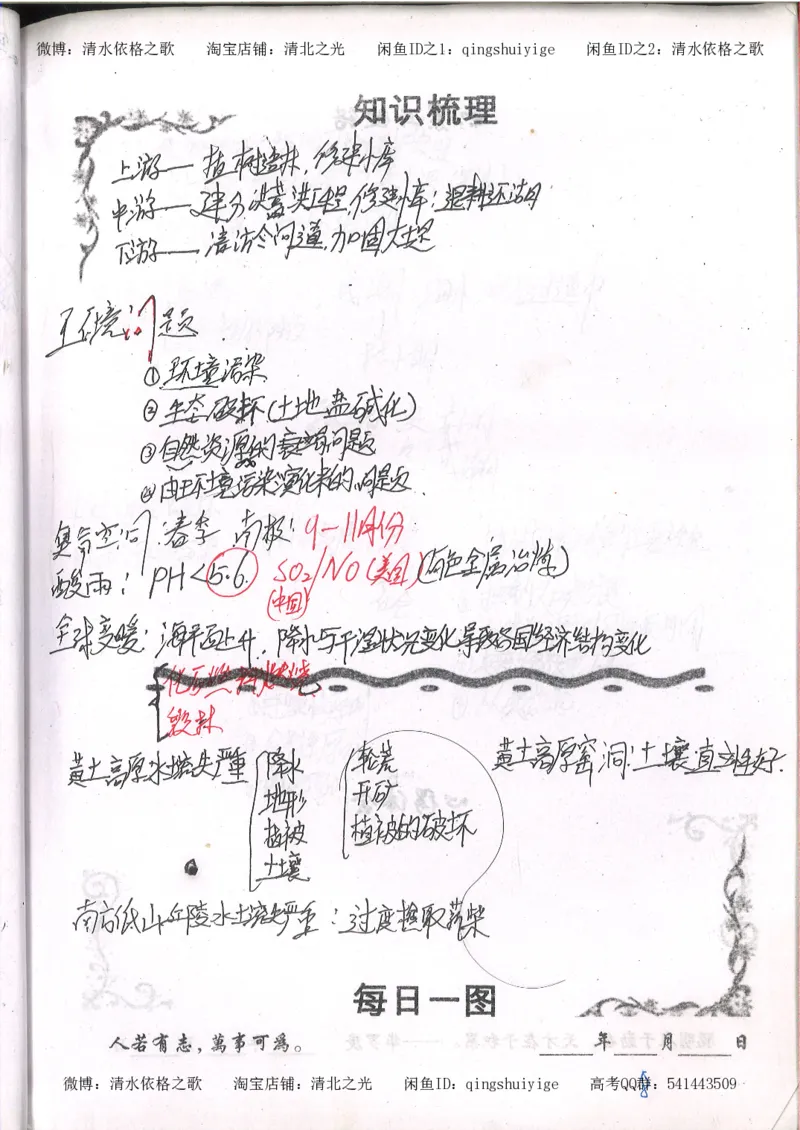 微博：清水依格之歌 淘宝店铺：清北之光 闲鱼ID之1：qingshuiyige 闲鱼ID之2：清水依格之歌
知识梳理
上游—植树造林，修建水库
中游—建分洪蓄洪工程，修建水库；退耕还湖
下游—清访今问道，加固大堤
环境问题
①环境污染
②生态破坏（土地盐碱化）
③自然资源的衰竭问题
④由环境污染演化来的问题.
臭氧空洞 春季 南极：9-11月份
酸雨：PH<5.6. SO₂/NO（美国）（有色金属冶炼）
（中国）
全球变暖：海平面上升，降水与干湿状况变化，导致各国经济结构变化
化石燃料燃烧
毁林
黄土高原水土流失严重 降水 轮荒 黄土高原窑洞：土壤直立性好.
地形 开矿
植被 植被的破坏
土壤
南方低山丘陵水土流失严重：过度樵取薪柴
每日一图
人若有志，萬事可為。 年 月 日
微博：清水依格之歌 淘宝店铺：清北之光 闲鱼ID：qingshuiyige 高考QQ群：541443509